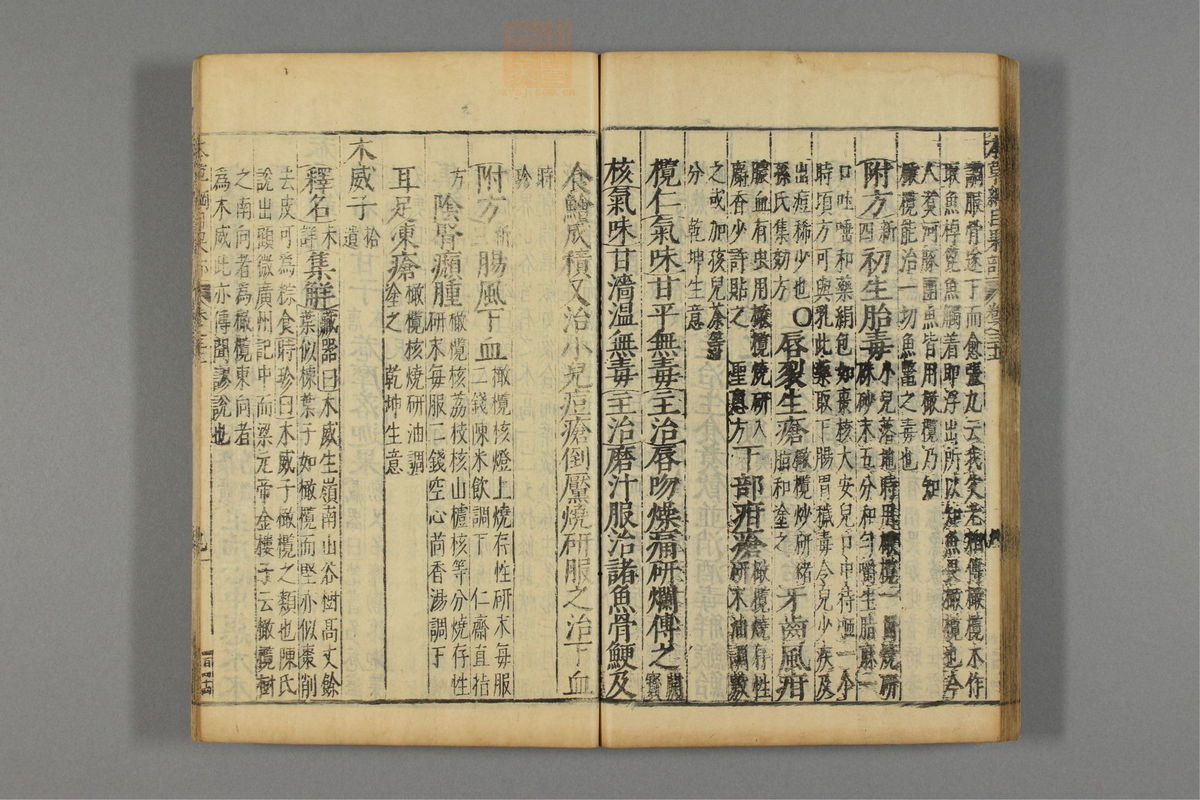 本草綱目果部
滿服骨遂下而愈張九云我父老相傳橄欖木作
取魚棹篦魚觸着即浮出所以知魚畏橄欖也今
人煮河豚團魚皆用橄欖乃知
橄欖能治一切魚鱉之毒也
附方新四初生胎毒小兒落地時用橄欖一箇燒研
朱砂末五分和勻嚼生脂麻一
口吐唾和藥絹包如棗核大安兒口中待咂一个
時頃方可與乳此藥取下腸胃穢毒令兒少疾及
出痘稀少也○孫氏集効方
唇裂生瘡橄欖炒研猪脂和塗之
牙齒風疳
膿血有虫用橄欖燒研入
麝香少許貼之聖惠方下部疳瘡橄欖燒存性研末油調敷
之或加孩兒茶等分乾坤生意
欖仁氣味甘平無毒主治唇吻燥痛研爛傅之開寶
核氣味甘濇溫無毒主治磨汁服治諸魚骨鯁及
食鱠成積又治小兒痘瘡倒黶燒研服之治下血
時珍
附方新三腸風下血橄欖核燈上燒存性研末每服
二錢陳米飲調下仁齋直指
方
陰腎癩腫橄欖核荔枝核山樝核等分燒存性
研末每服二錢空心茴香湯調下
耳足凍瘡橄欖核燒研油調塗之乾坤生意
木威子拾遺
釋名
集解藏器曰木威生嶺南山谷樹高丈餘
葉似楝葉子如橄欖而堅亦似棗削
去皮可為粽食時珍曰木威子橄欖之類也陳氏
說出顧微廣州記中而梁元帝金樓子云橄欖樹
之南向者為橄欖東向者
為木威此亦傳聞謬說也